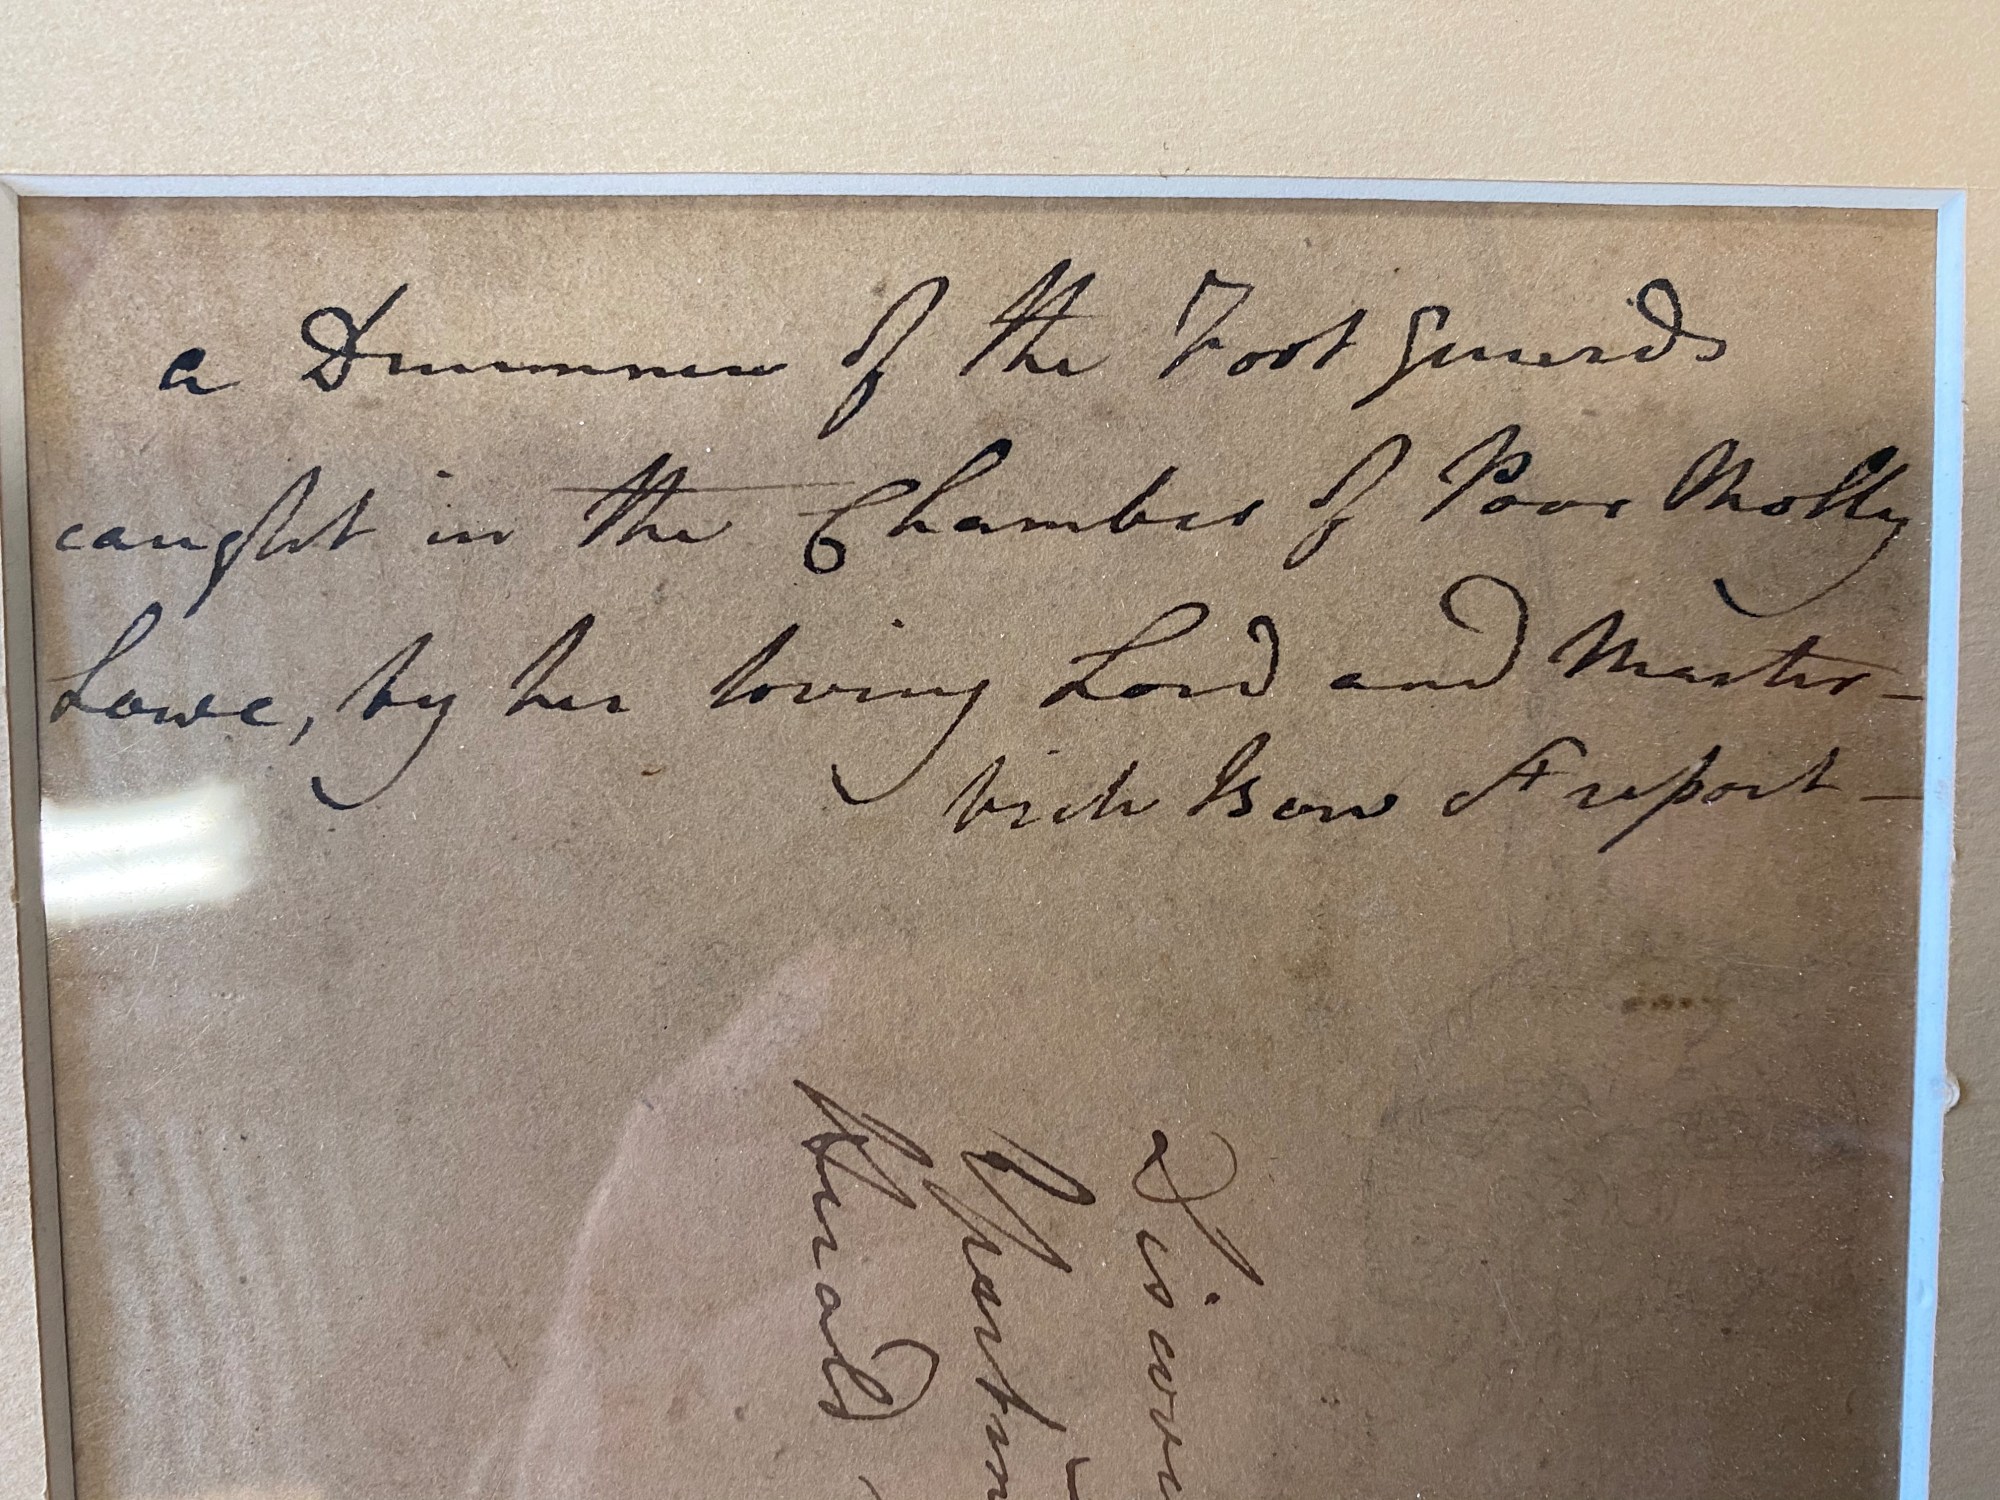 a Drummer of the Foot Guards
caught in the Chamber of Poor Molly
Lowe, by her loving Lord and Master –
vide Bow St report –
Discove
Apartm
Herald